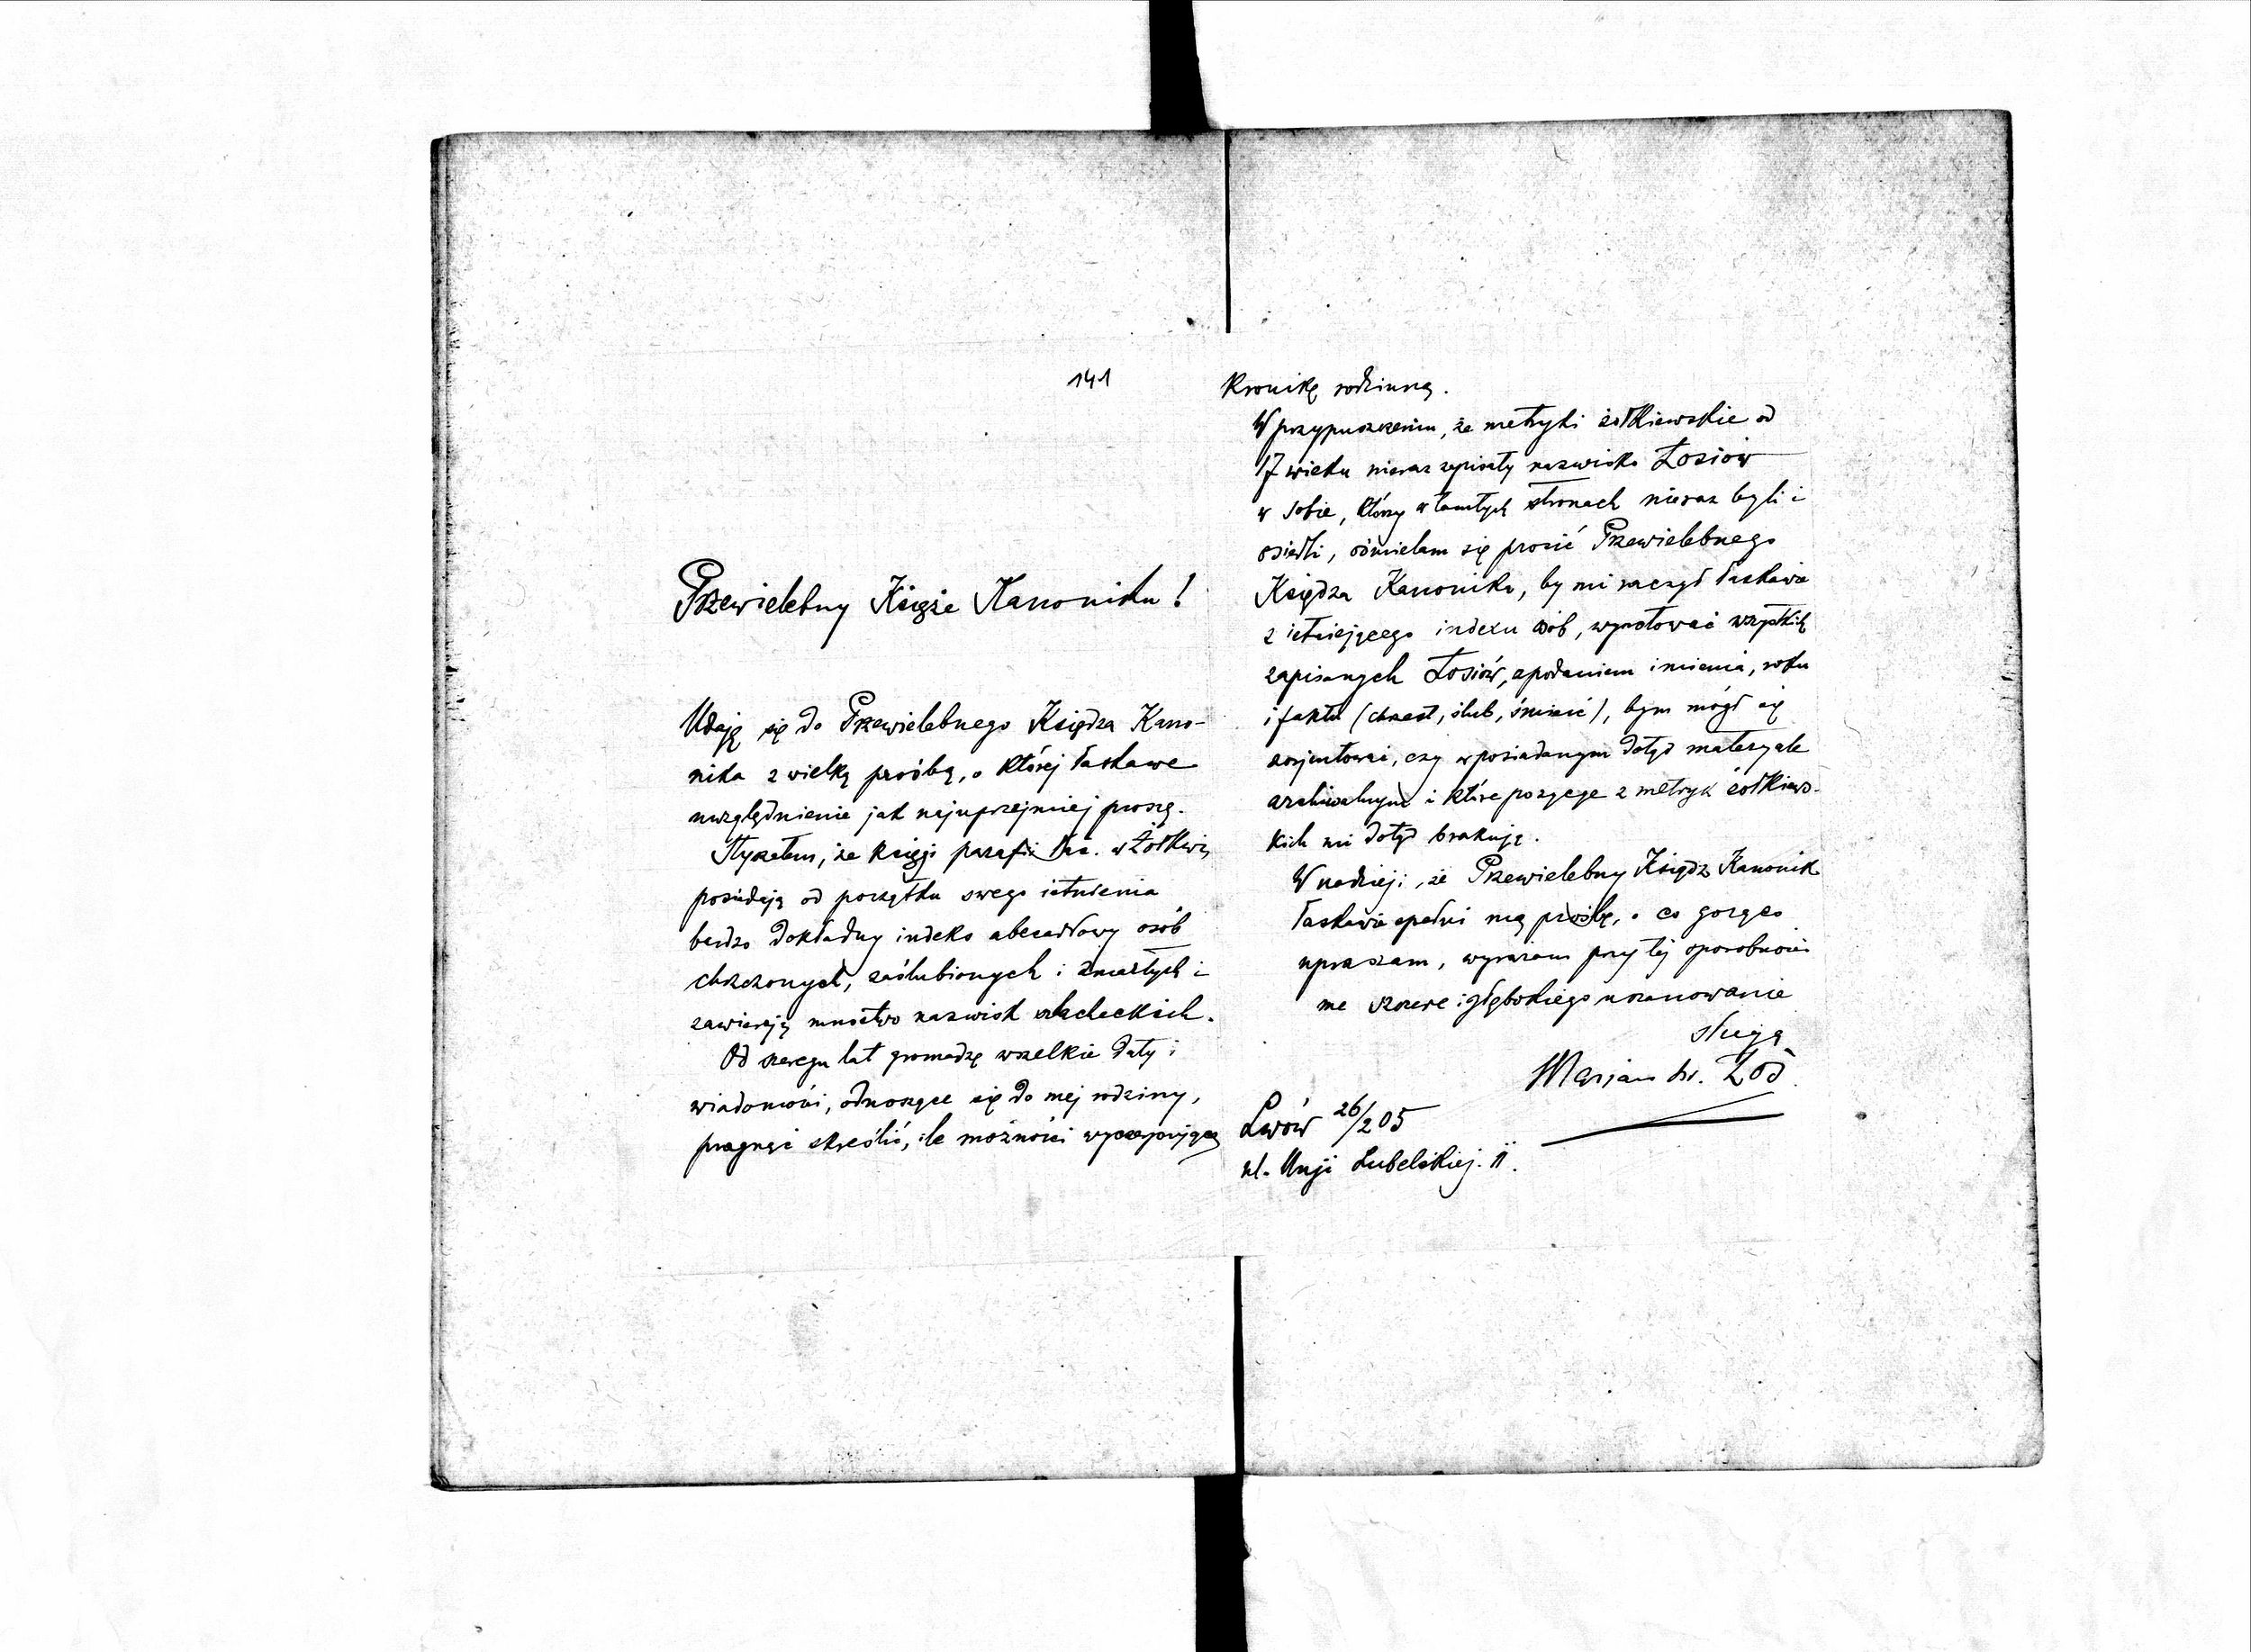 141
Przewielebny Księże Kanoniku!
Udaję się do Przewielebnego Księdza Kano-
nika z wielką prośbą, o której łaskawe
uwzględnienie jak najuprzejmiej proszę.
Słyszałem, że księgi parafii łać. w Żółkwi,
posiadają od początku swego istnienia
bardzo dokładny indeks abecadłowy osób
chrzczonych, zaślubionych i zmarłych i
zawierają mnóstwo nazwisk szlacheckich.
Od szeregu lat gromadzę wszelkie daty i
wiadomości, odnoszące się do mej rodziny,
pragnąc skreślić, ile możności wyczerpującą
Kronikę rodzinną.
W przypuszczeniu, że metryki żółkiewskie od
17 wieku nieraz zapisały nazwisko Łosiów
w sobie, którzy w tamtych stronach nieraz byli i
osiedli, ośmielam się prosić Przewielebnego
Księdza Kanonika, by mi raczył łaskawie
z istniejącego indexu osób, wynotować wszystkich
zapisanych Łosiów, z podaniem imienia, roku
i faktu (chrzest, ślub, śmierć), bym mógł się
zorjentować, czy w posiadanym dotąd materyale
archiwalnym i które pozycye z metryk żółkiews-
kich mi dotąd brakują.
W nadzieji, że Przewielebny Ksiądz Kanonik
łaskawie spełni mą prośbę, o co gorąco
upraszam, wyrażam przy tej sposobności
me szczere i głębokiego uszanowanie
sługa
Marjan hr. Łoś.
Lwów 26/2 05
ul. Unji Lubelskiej. 11.